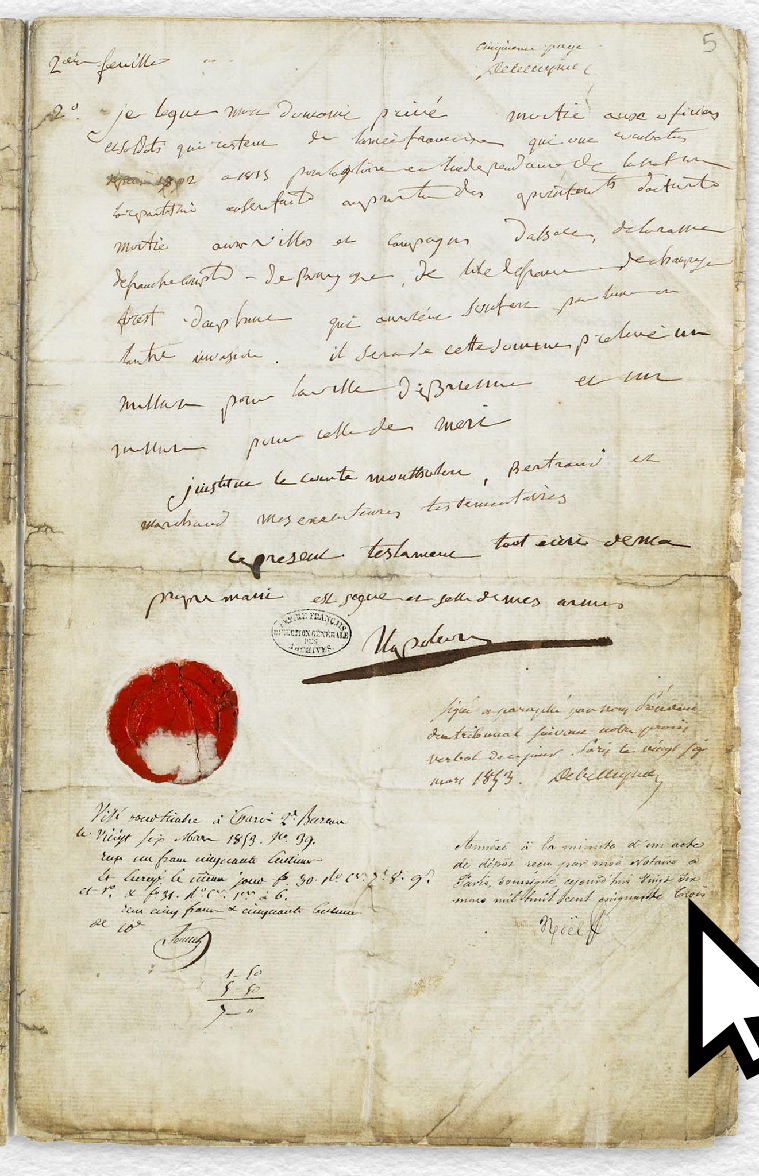 5
cinquieme page
2eme feuille
2°. je legue mon domaine privé moitié aux officiers
et soldats qui restent de larmée francaise qui ont combatu
depuis 1792 a 1815 pour la gloire et lindependance de la nation
la repartition en sera faite au prorata des apointements dactivité
moitié aux villes et campagnes dalsace, de loraine
de franche compté - de Bourgogne, de lile de france de champagne
forest dauphiné qui auroient soufert par lune ou
lautre invasion. il sera de cette somme prelevé un
million pour la ville de Brienne et un
million pour celle de meri
jinstitue le comte montholon, Bertrand et
marchand mes executeurs testamentaires
ce present testament tout ecrit de ma
propre main est signé et scellé de mes armes
EMPIRE FRANÇAIS
DIRECTION GÉNÉRALE
DES
ARCHIVES
Napoleon
Signé et paraphé par nous Président
du tribunal suivant notre procès
verbal de ce jour. Paris le vingt six
mars 1853.
Visé pour timbre à Paris 2e Bureau
le Vingt six Mars 1853. No. 39.
reçu un franc cinquante Centimes
cinq francs cinquante Centimes
de 10e
1-50
5-50
7 "
Annexé à la minute d'un acte
de dépôt reçu par moi Notaire à
Paris, soussigné, cejourd'hui Vingt Six
mars mil huit cent cinquante trois
Noël